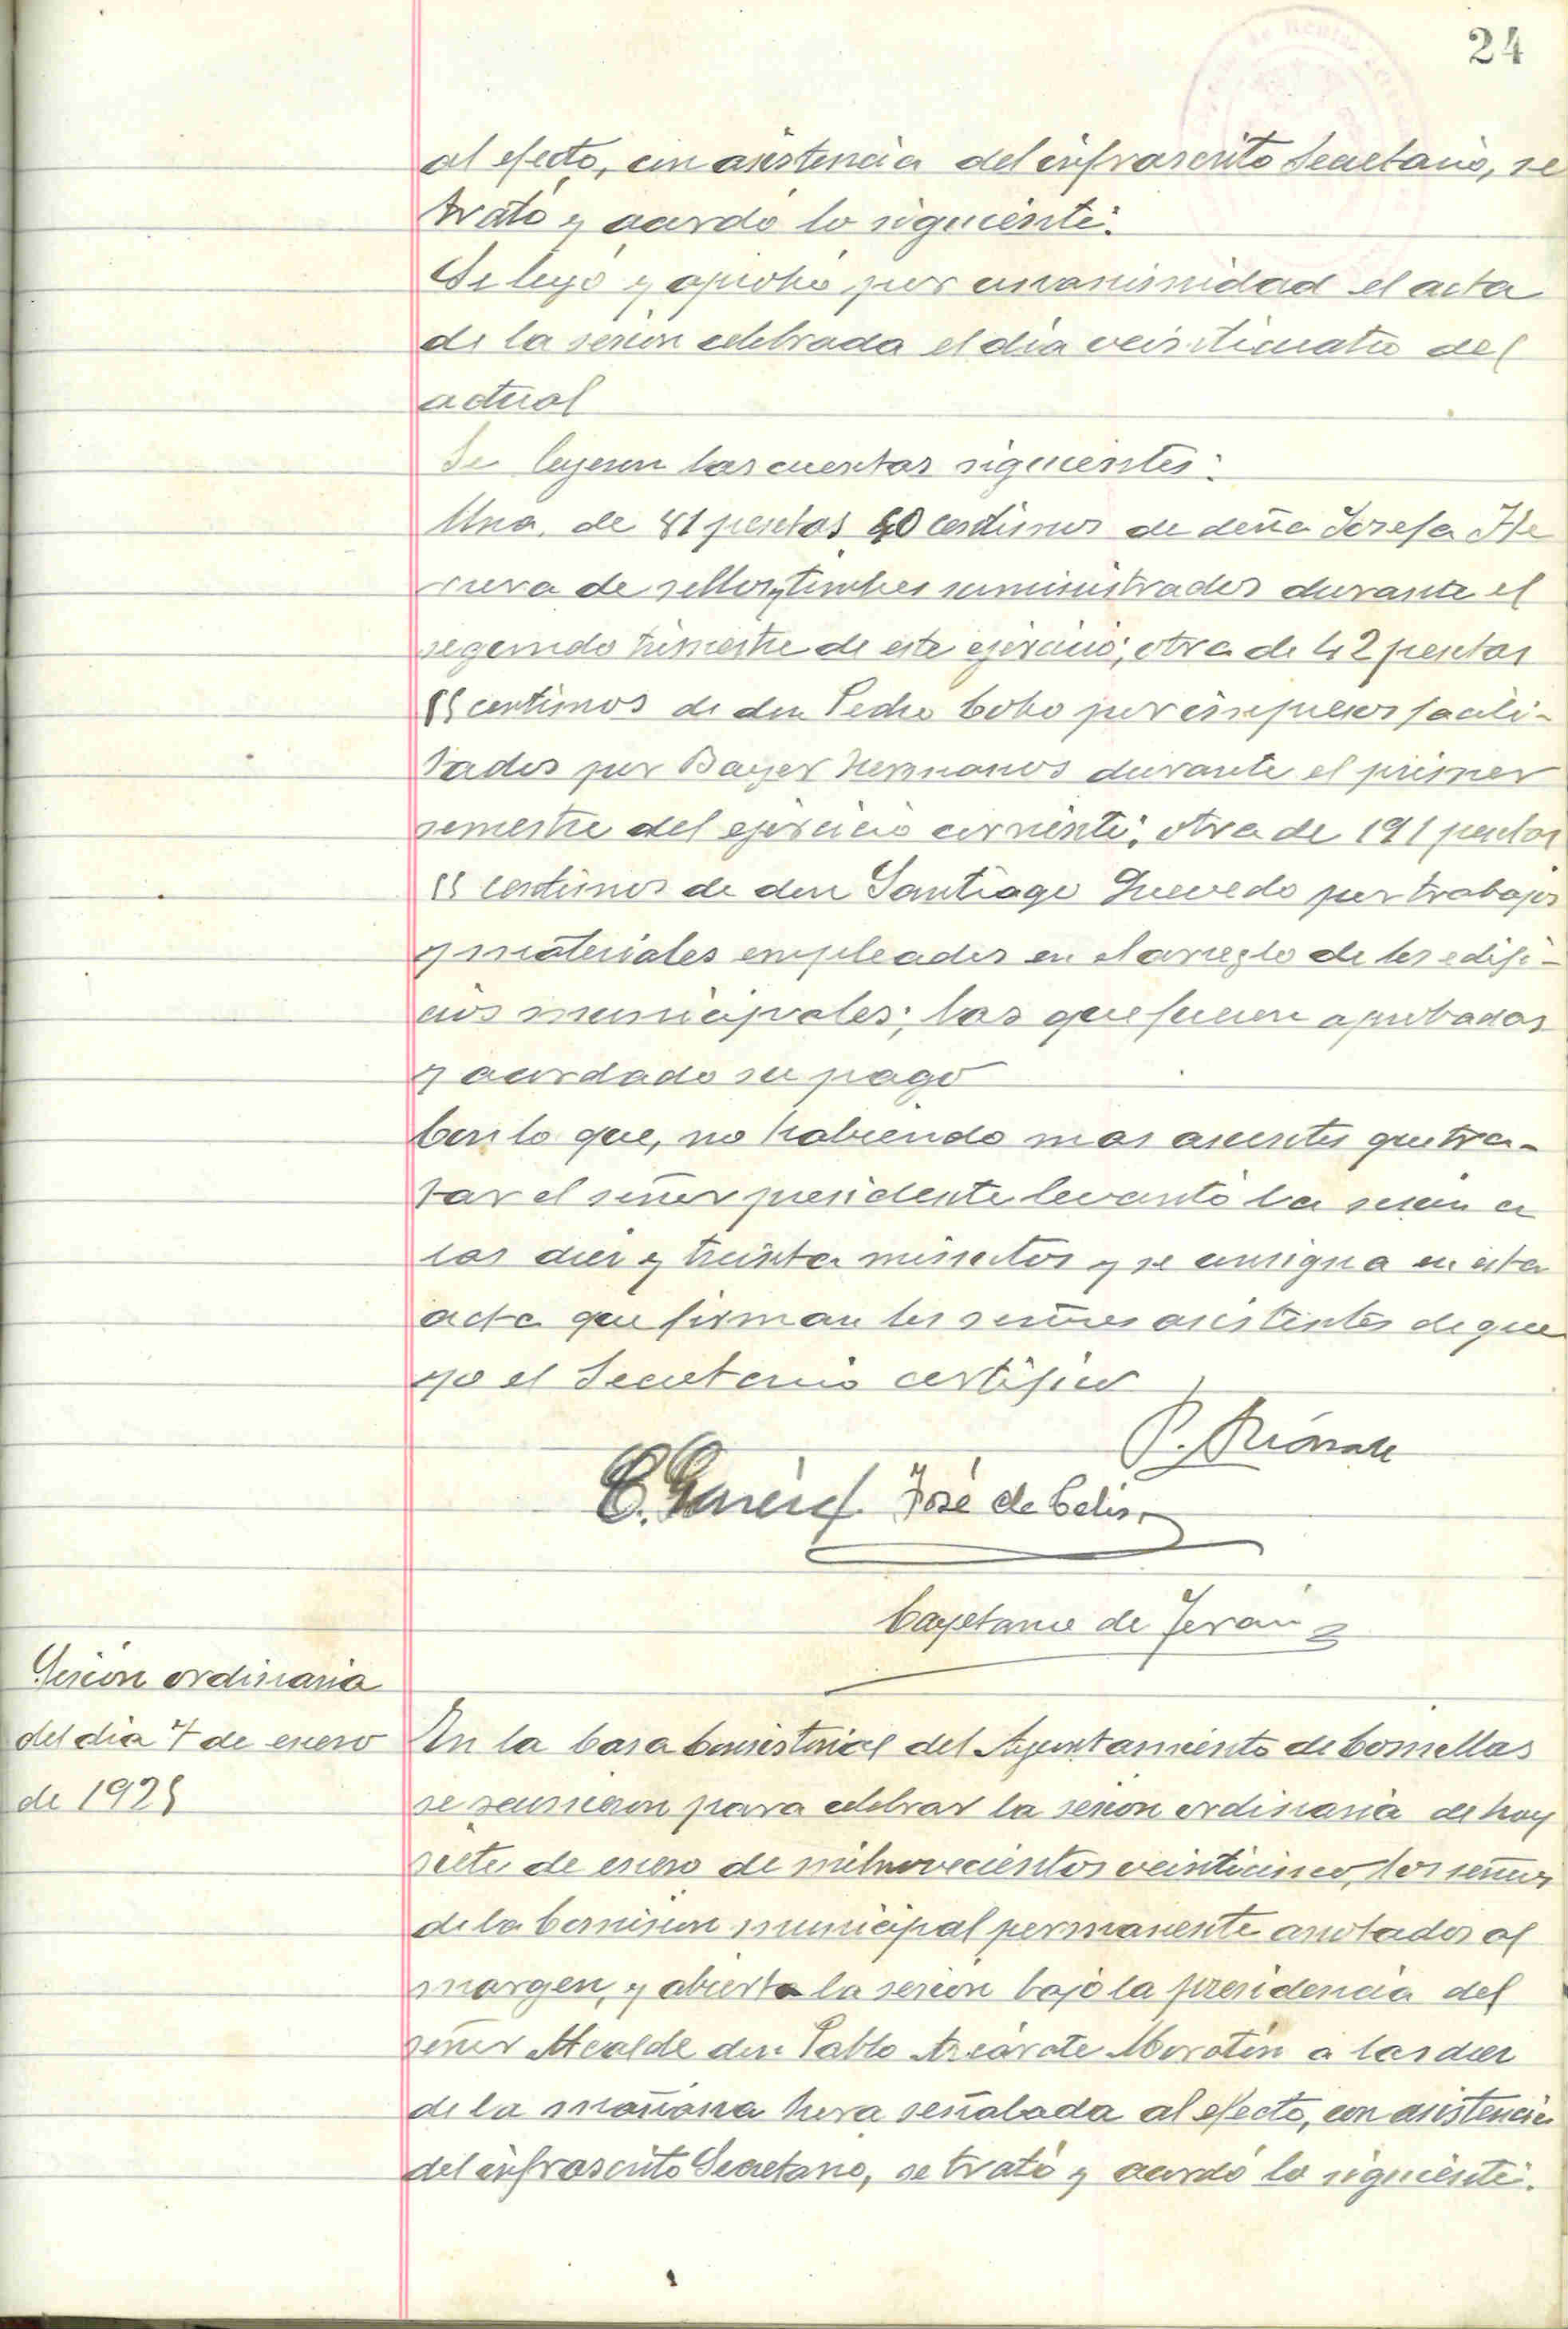 24
al efecto, con asistencia del infrascrito Secretario, se
trató y acordó lo siguiente:
Se leyó y aprobó por unanimidad el acta
de la sesion celebrada el día veinticuatro del
actual
Se leyeron las cuentas siguientes:
Una, de 81 pesetas 40 centimos de doña Josefa He
rrera de sellos y timbres suministrados durante el
segundo trimestre de este ejercicio; otra de 42 pesetas
centimos de don Pedro Cobo por impresos facili-
tados por Bayer hermanos durante el primer
semestre del ejercicio corriente; otra de 191 pesetas
centimos de don Santiago Quevedo por trabajos
y materiales empleados en el arreglo de los edifi-
cios municipales; las que fueron aprobadas
y acordado su pago
Con lo que, no habiendo mas asuntos que tra-
tar el señor presidente levantó la sesion a
las diez y treinta minutos y se consigna en esta
acta que firman los señores asistentes de que
yo el Secretario certifico
P.
C. García José de Celis
Cayetano de Terán
Sesión ordinaria
del día 7 de enero
de 1925
En la Casa Consistorial del Ayuntamiento de Comillas
se reunieron para celebrar la sesion ordinaria de hoy
siete de enero de mil novecientos veinticinco, los señores
de la Comision municipal permanente anotados al
margen, y abierta la sesion bajo la presidencia del
señor Alcalde don Pablo Azcárate Moratín a las diez
de la mañana hora señalada al efecto, con asistencia
del infrascrito Secretario, se trató y acordó lo siguiente: